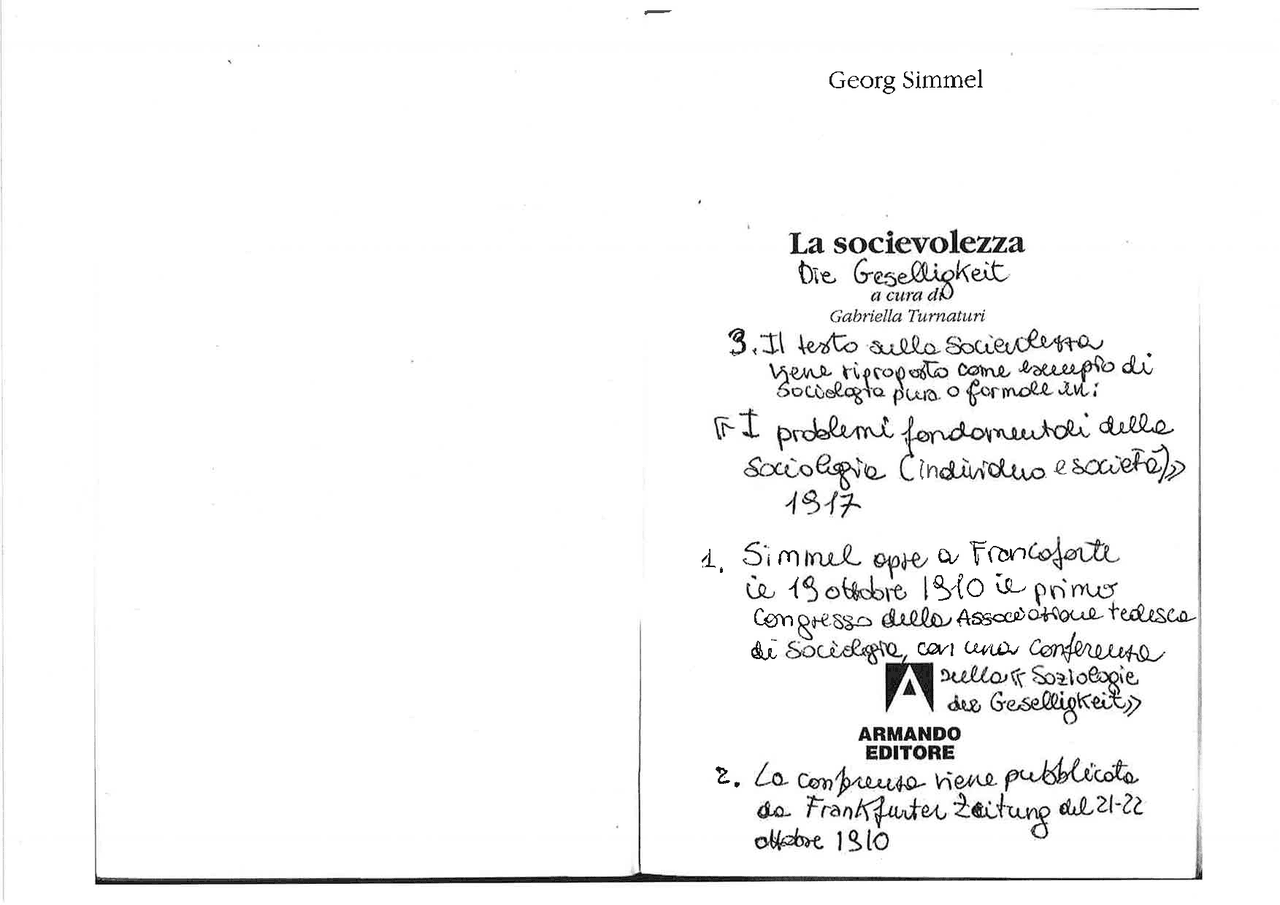 Georg Simmel
La socievolezza
Die Geselligkeit
a cura di
Gabriella Turnaturi
3. Il testo sulla Socievolezza
viene riproposto come esempio di
Sociologia pura o formale in:
« I problemi fondamentali della
Sociologia (individuo e società)»
1917
1. Simmel apre a Francoforte
il 19 ottobre 1910 il primo
Congresso della Associazione tedesca
di Sociologia, con una conferenza
sulla « Soziologie
der Geselligkeit»
ARMANDO
EDITORE
2. La conferenza viene pubblicata
da Frankfurter Zeitung del 21-22
ottobre 1910